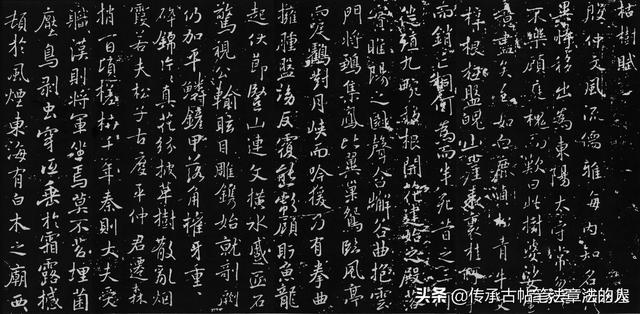 枯樹賦
殷仲文風流儒雅海內知名
異時移出為東陽太守常忽
不樂顧庭槐而歎曰此樹婆娑
意盡矣至如白鹿貞松青牛文
梓根柢盤魄山崖表裏桂
而銷亡桐何為而半死昔之三
徙殖九畹移根開花建始之殿落
睢陽之園聲含嶰谷曲抱雲
門將鶵集鳳比翼巢鴛臨風亭
而唳鶴對月峽而吟猨乃有拳曲
擁腫盤坳反覆熊彪顧盼魚龍
起伏節豎山連文橫水蹙匠石
驚視公輸眩目雕鐫始就剞劂
仍加平鱗鏟甲落角摧牙重重
碎錦片片真花紛披草樹散亂烟
霞若夫松子古度平仲君遷森
梢百頃槎枿千年秦則大夫受
職漢則將軍坐焉莫不苔埋菌
壓鳥剝虫穿低垂於霜露撼
頓於風煙東海有白木之廟西
头条 @传承古帖笔法章法的人